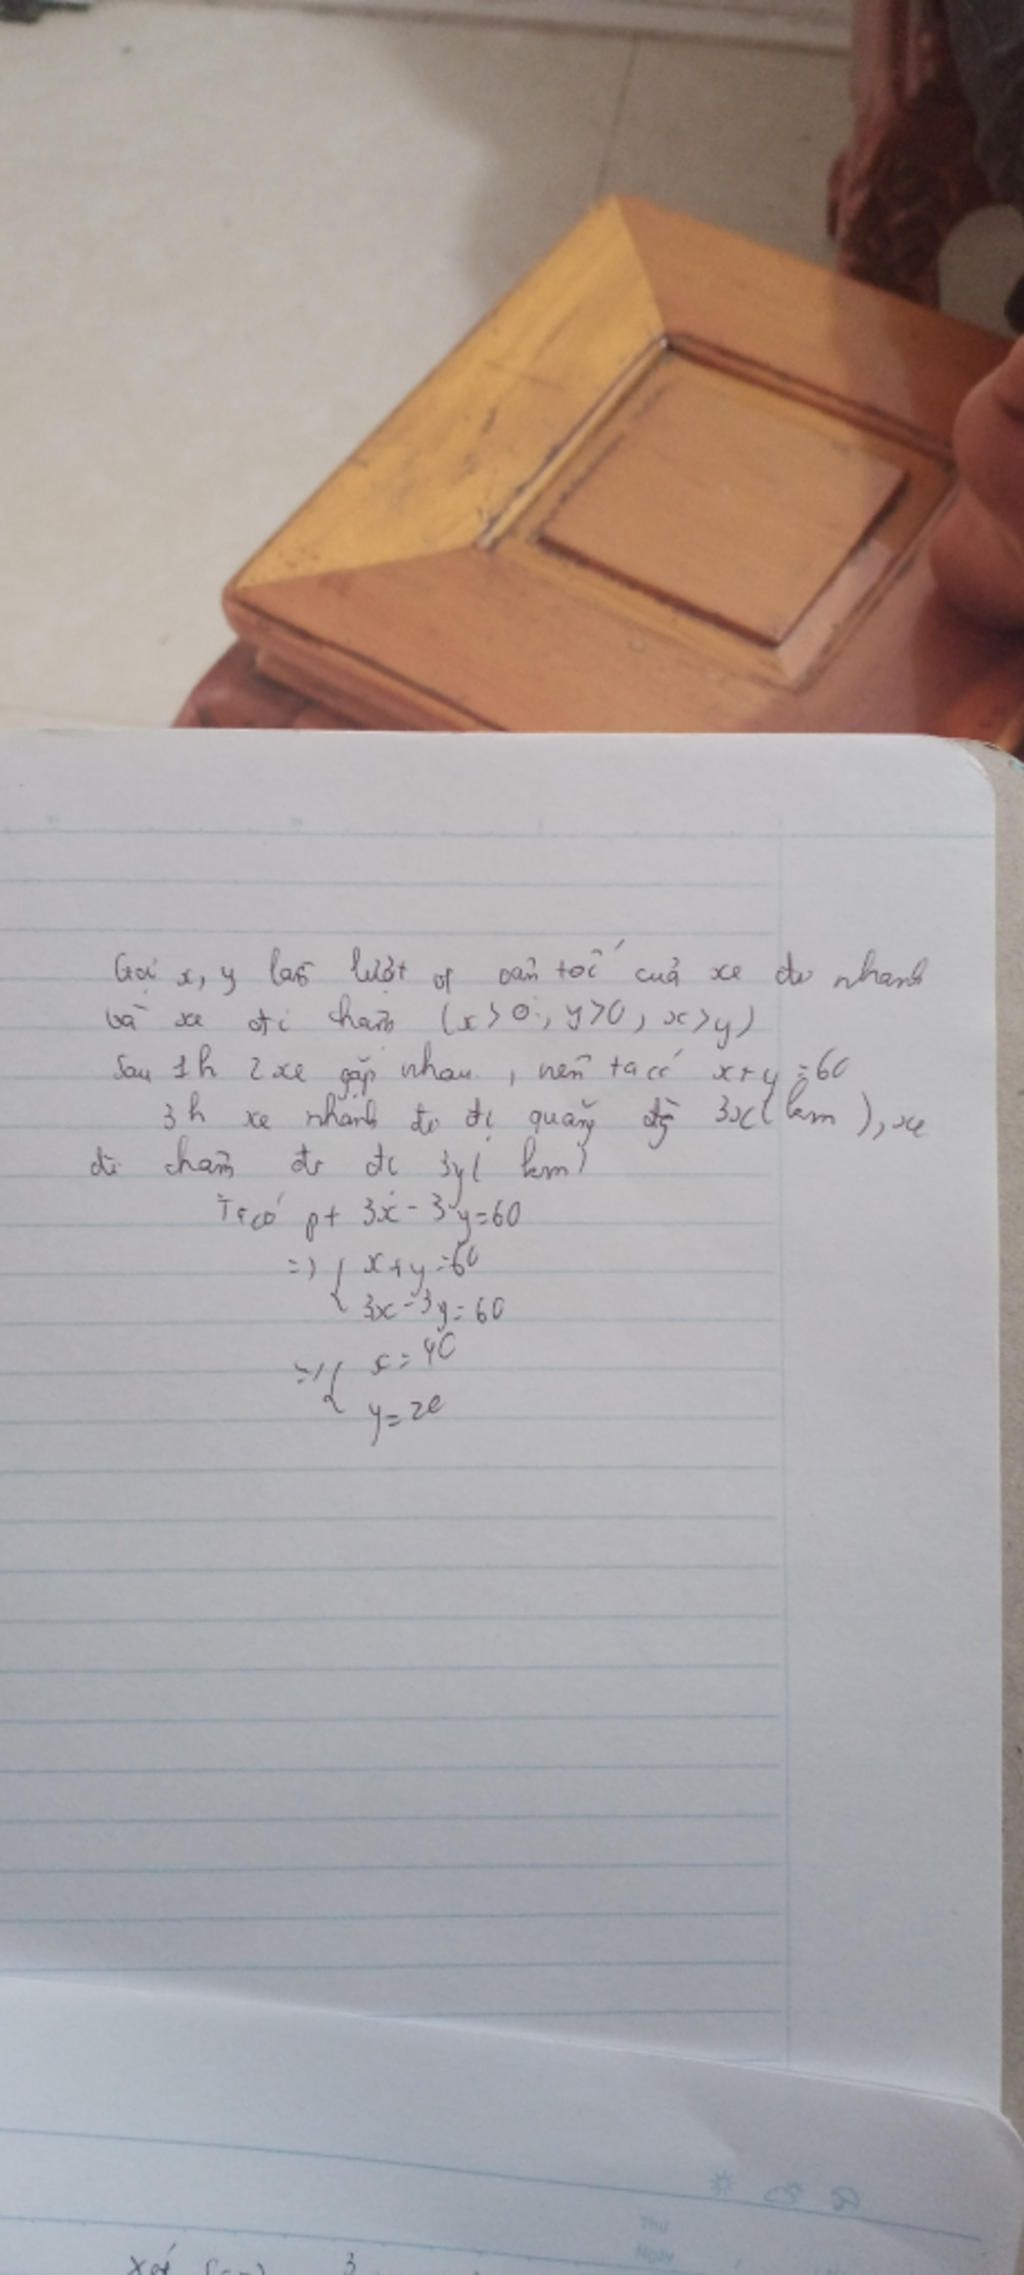 Gọi x, y lần lượt vận tốc của xe đi nhanh
và xe đi chậm (x>0, y>0, x>y)
Sau 1h 2 xe gặp nhau, nên ta có x+y=60
3h xe nhanh đi đc quãng đg 3x(km), xe
đi chậm đi đc 3y(km)
Ta có pt 3x-3y=60
=> { x+y=60
3x-3y=60
=> { x=40
y=20
Thứ
Ngày
3